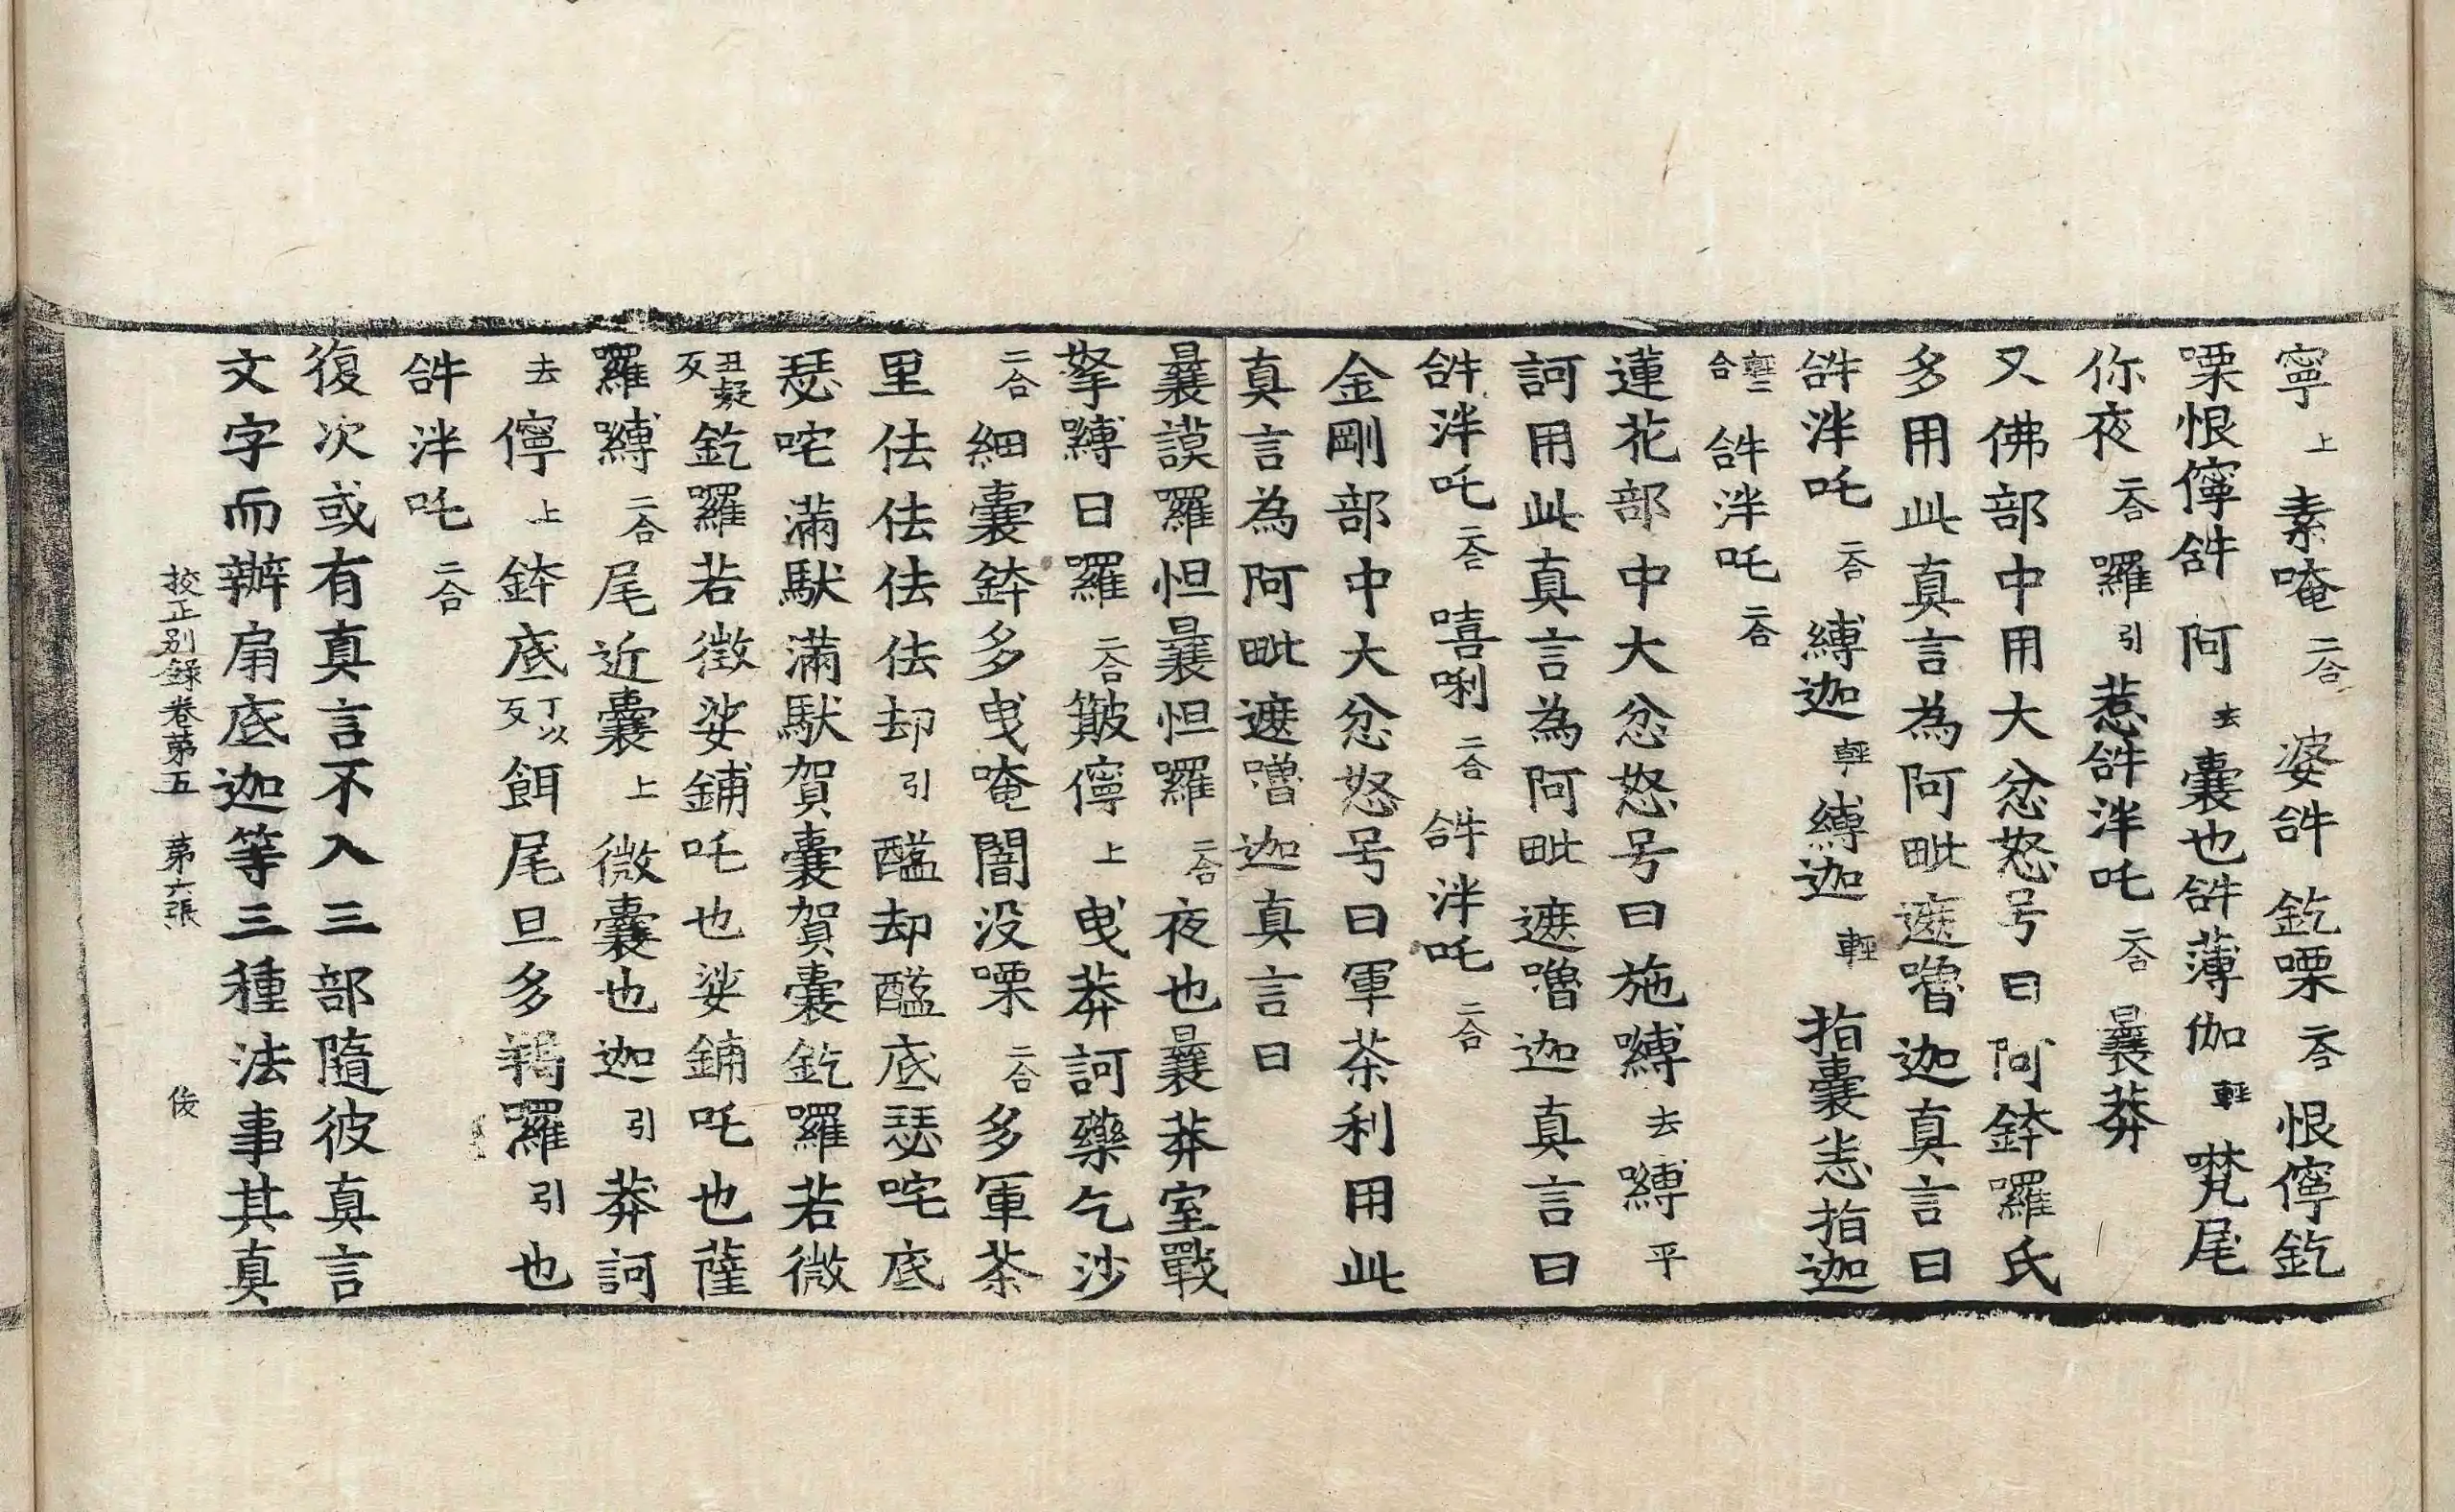 寧上素唵二合婆𤙖釳㗚二合恨儜釳
㗚恨儜𤙖阿去囊也𤙖薄伽輕㘕尾
你夜二合囉引惹𤙖泮吒二合曩莽
又佛部中用大忿怒号曰阿鉢囉氏
多用此真言為阿毗遮嚕迦真言曰
𤙖泮吒二合縛迦輕縛迦輕指囊恙指迦
輕二合𤙖泮吒二合
蓮花部中大忿怒号曰施嚩去嚩平
訶用此真言為阿毗遮嚕迦真言曰
𤙖泮吒二合嘻唎二合𤙖泮吒二合
金剛部中大忿怒号曰軍荼利用此
真言為阿毗遮嚕迦真言曰
曩謨羅怛曩怛囉二合夜也曩莽室戰
拏嚩日囉二合簸儜上曳莽訶藥乞沙
二合細囊鉢多曳唵闇没㗚二合多軍荼
里佉佉佉佉却引醯却醯底瑟咤底
瑟咤滿馱滿馱賀囊賀囊釳囉若微
丑疑反釳囉若徵娑鋪吒也娑鋪吒也薩
羅嚩二合尾近囊上微囊也迦引莽訶
去儜上鉢底丁以反餌尾旦多羯囉引也
𤙖泮吒二合
復次或有真言不入三部隨彼真言
文字而辦扇底迦等三種法事其真
挍正别録卷苐五 苐六張 俊